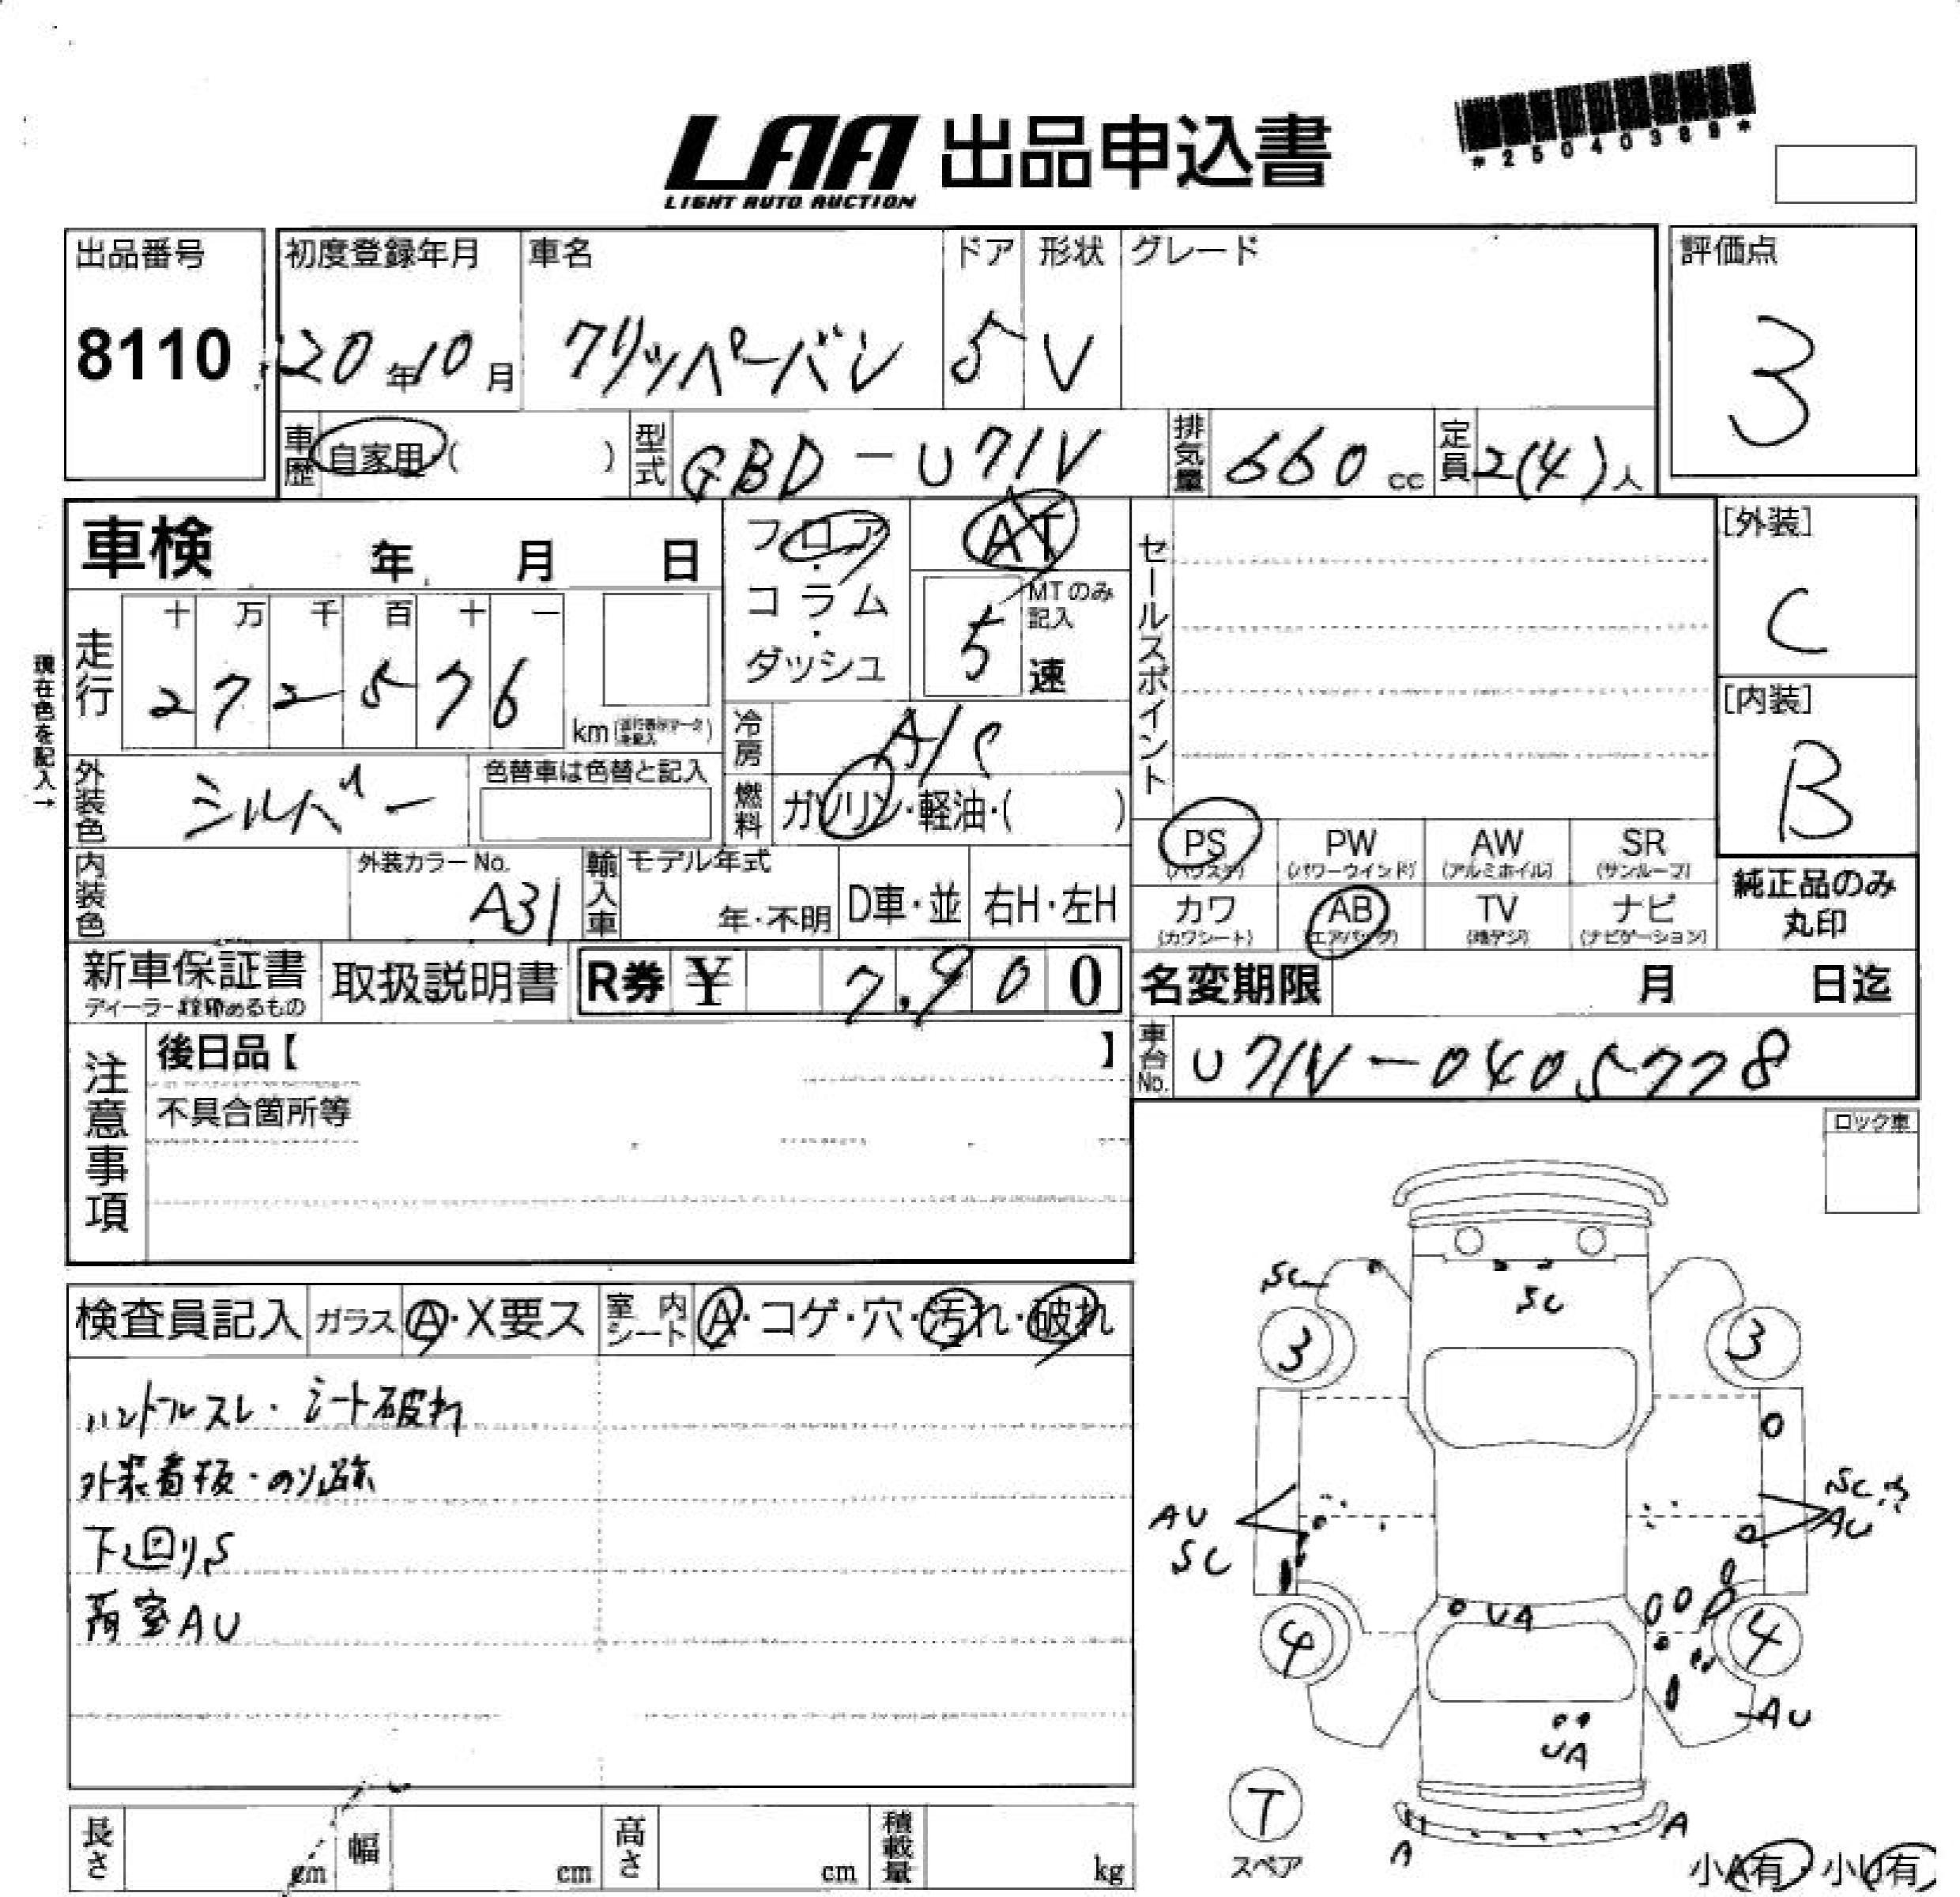 LAA 出品申込書
LIGHT AUTO AUCTION
*25040389*
出品番号
8110
初度登録年月
20年10月
車名
クリッパーバン
ドア
5
形状
V
グレード
評価点
3
車歴
自家用・( )
型式
GBD-U71V
排気量
660cc
定員
2(4)人
車検 年 月 日
フロア・コラム・ダッシュ
AT
MTのみ記入
5速
セールスポイント
[外装]
C
[内装]
B
現在色を記入→
走行
十 万 千 百 十 一
2 7 2 5 7 6
km
冷房
A/C
燃料
ガソリン・軽油・( )
外装色
シルバー
色替車は色替と記入
内装色
外装カラーNo.
A31
輸入車
モデル年式
年・不明
D車・並
右H・左H
PS (パワステ)
PW (パワーウインド)
AW (アルミホイル)
SR (サンルーフ)
カワ (カワシート)
AB (エアバッグ)
TV (地デジ)
ナビ (ナビゲーション)
純正品のみ
丸印
新車保証書
取扱説明書
R券 ¥ 7,900
名変期限 月 日迄
車台No.
U71V-0405778
注意事項
後日品【 】
不具合箇所等
ロック車
検査員記入
ガラス
A・X要ス
室内シート
A・コゲ・穴・汚れ・破れ
ハンドルスレ・シート破れ
外装看板・のり跡
下廻りS
荷室AU
SC
SC
3
3
AU
SC
SC
AU
UA
4
4
AU
UA
T
スペア
A
A
小A有・小U有
長さ cm
幅 cm
高さ cm
積載量 kg